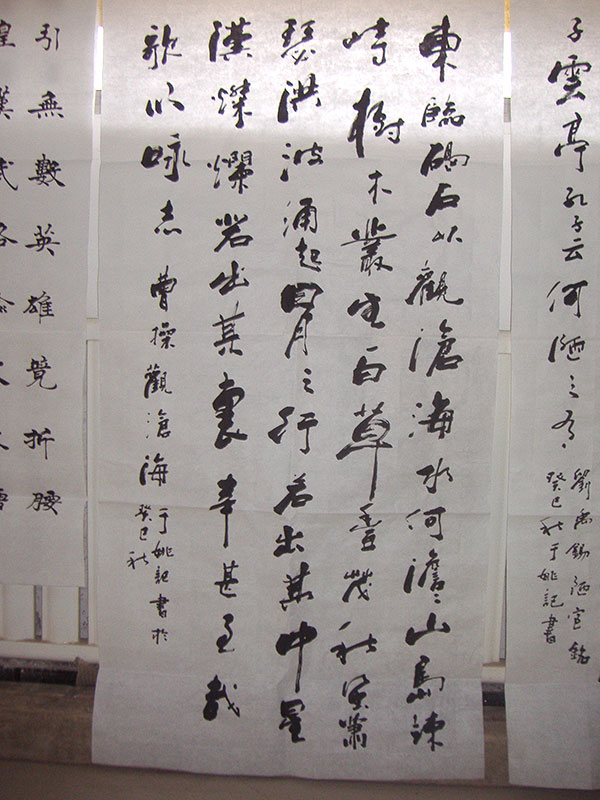 子雲亭孔子云何陋之有
劉禹錫陋室銘
癸巳秋于姚記書
東臨碣石以觀滄海水何澹〻山島竦
峙樹木叢生百草豐茂秋風蕭
瑟洪波涌起日月之行若出其中星
漢燦爛若出其裏幸甚至哉
歌以咏志 曹操觀滄海 于姚記書於
癸巳秋
引無數英雄競折腰
皇漢武